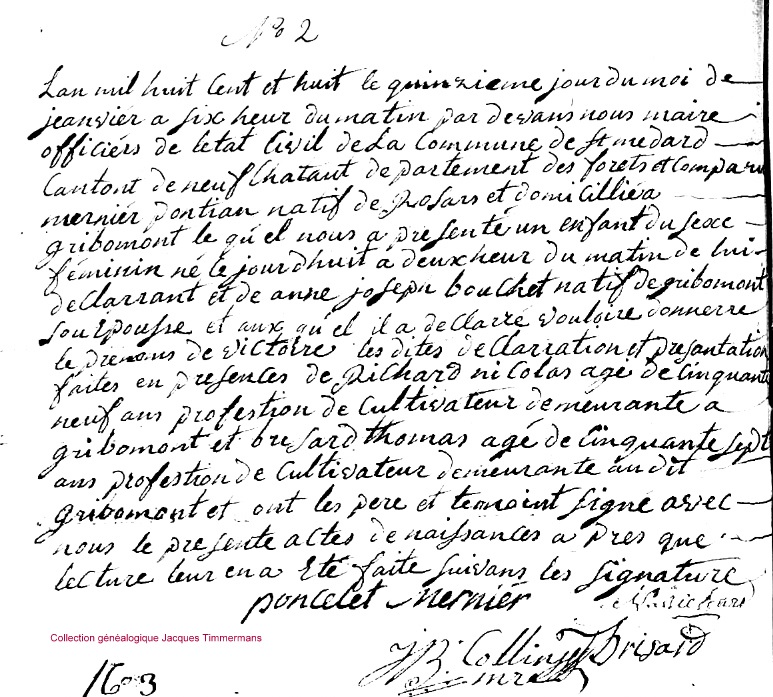 No 2
Lan mil huit Cent et huit le quinzieme jour du moi de
jeanvier a six heur du matin par devans nous maire
officiérs de letat Civil de La Commune de St medard
Cantont de neufChataut departement des forets et Comparu
mernier pontian natif de Rosars et domicilliéa
gribomont le qu'el nous a presenté un enfant du sexe
féminin né le jourdhuit a deux heur du matin de lui
declarrant et de anne joseph bouchet natif de gribomont
sou Epousse et aux qu'el il a declarré vouloire donnerre
le prenons de victoire les dites declarration et presantation
faites en presences de Richard nicolas agé de Cinquante
neuf ans profestion de Cultivateur demeurante a
gribomont et brisard thomas agé de Cinquante sept
ans profestion de Cultivateur demeurante audit
gribomont et ont les pere et temoint signe avec
nous le presente actes de naissances a pres que
lecture leur en a Eté faite suivans les signature
poncelet Mernier
Collection généalogique Jacques Timmermans
JB Collin Brisard
mre
1603